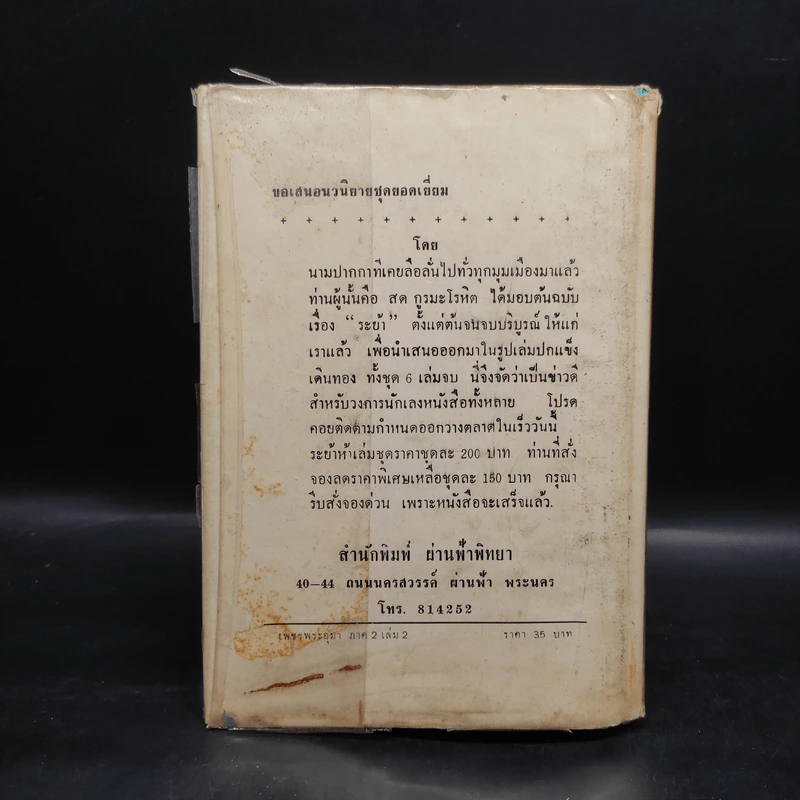 ขอเสนอนวนิยายชุดยอดเยี่ยม
+ + + + + + + + + + + +
โดย
นามปากกาที่เคยลือลั่นไปทั่วทุกมุมเมืองมาแล้ว
ท่านผู้นั้นคือ สด กูรมะโรหิต ได้มอบต้นฉบับ
เรื่อง “ระย้า” ตั้งแต่ต้นจนจบบริบูรณ์ ให้แก่
เราแล้ว เพื่อนำเสนอออกมาในรูปเล่มปกแข็ง
เดินทอง ทั้งชุด 6 เล่มจบ นี่จึงจัดว่าเป็นข่าวดี
สำหรับวงการนักเลงหนังสือทั้งหลาย โปรด
คอยติดตามกำหนดออกวางตลาดในเร็ววันนี้
ระย้าห้าเล่มชุดราคาชุดละ 200 บาท ท่านที่สั่ง
จองลดราคาพิเศษเหลือชุดละ 150 บาท กรุณา
รีบสั่งจองด่วน เพราะหนังสือจะเสร็จแล้ว.
สำนักพิมพ์ ผ่านฟ้าพิทยา
40–44 ถนนนครสวรรค์ ผ่านฟ้า พระนคร
โทร. 814252
เพชรพระอุมา ภาค 2 เล่ม 2 ราคา 35 บาท